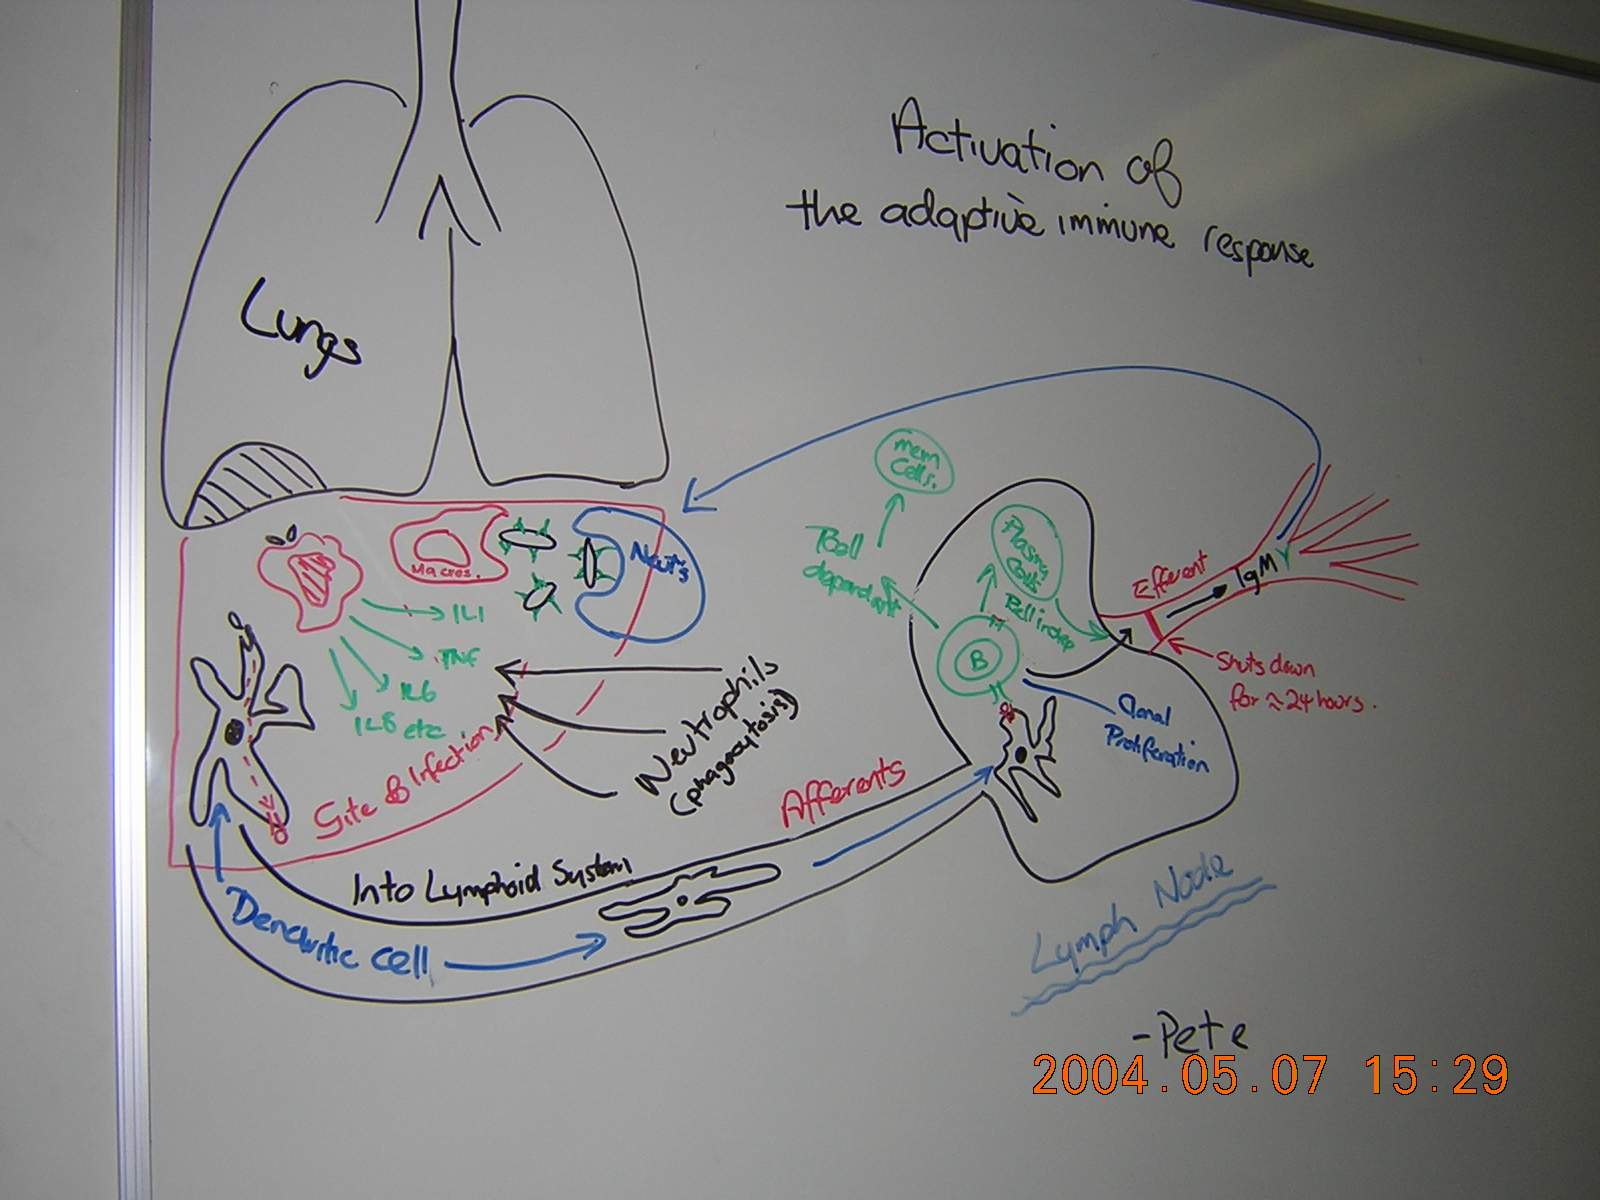 Activation of
the adaptive immune response
Lungs
mem
Cells.
Plasma
Cells
Macros.
Neut's
T Cell
dependant
T Cell indep
Efferent
IgM
IL1
TNF
IL6
IL8 etc
B
Shuts down
for ≈24 hours.
Clonal
Proliferation
Neutrophils
(phagocytosis)
Site of Infection
Afferents
Into Lymphoid System
Dendritic cell
Lymph Node
-Pete
2004.05.07 15:29